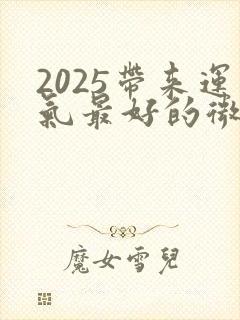 2025帶來運
氣最好的微
魔女雪兒